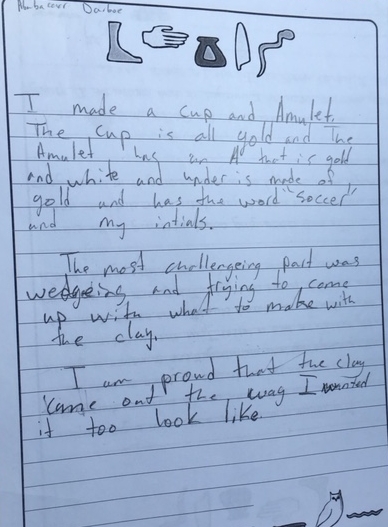 I made a cup and Amulet.
The cup is all gold and The
Amulet has an A that is gold
and white and under is made of
gold and has the word "soccer"
and my intials.
The most challengeing part was
wedgeing and trying to come
up with what to make with
the clay.
I am proud that the clay
came out the way I wanted
it too look like.